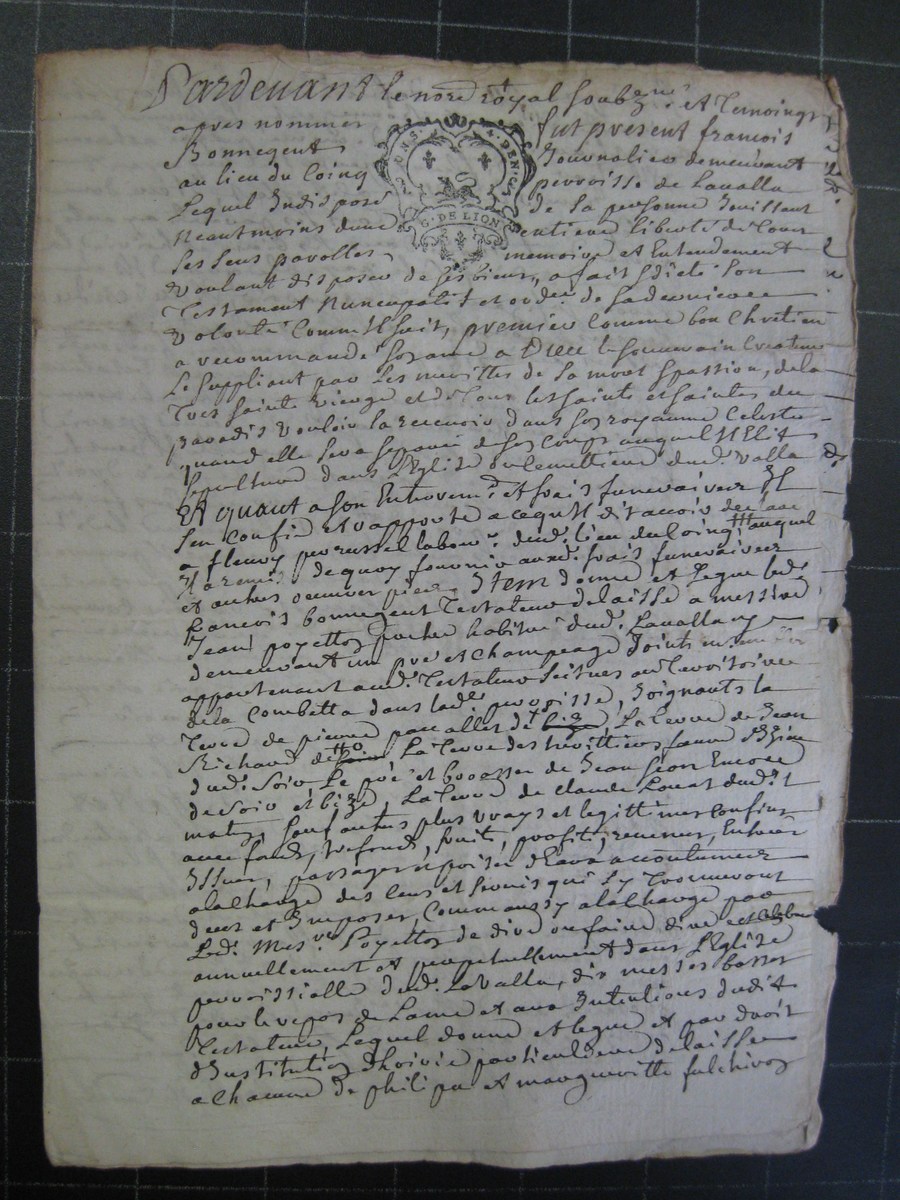 Pardevant le nore royal soubzne et temoings
apres nommes fut present francois
Bonnegent Journalier demeurant
au lieu du Coing perroisse de Lavalla
Lequel Indisposé de sa personne Jouissant
Neantmoins dune entiere liberté de tous
ses sens parolles memoire et Entendement
voulant disposer de ses biens, a fait & dicté son
Testament Nuncupatif et ordre de sa derniere
volonté Comm'Il suit, premier comme bon Chretien
a recommandé son ame a Dieu le souverain Createur
Le suppliant par Les merittes de sa mort & passion, de la
tres sainte vierge et de tous les saints et saintes du
paradis vouloir la recevoir dans son royaume Celeste
quand elle sera separée de son Corps auquel Il Elit
sepulture dans L'Eglise ou Cemettiere dud. valla
Et quant a son Enterremt et frais funeraires Il
s'en confie et rapporte a ce qu'Il dit avoir
a fleury perrussel labour. dud. lieu du Coing auquel
Il a remis de quoy fournir auxd. frais funeraires
et autres œuvres pies, Item donne et Legue led.
francois bonnegent Testateur delaisse a messire
Jean poyetton prestre habitué dud. Lavalla y
demeurant un pré et champeage Joints ensemble
appartenant aud. Testateur scitues au Territoire
de la Combetta dans lad. perroisse, Joignants la
Terre de pierre parcallet de bize, La Terre de Jean
Richard de La Terre des heritiers faure
dud. soir Le pré et de Jean Encore
de soir et bize, La Terre de claude Louat dud.
matin, sauf autres plus vrays et legittimes Confins
avec fonds, trefonds, fruits, profits, revenus, Entrées
Issues, passages & prises d'eaux accoutumées
a la charge des cens et servis qui s'y trouveront
deus et Imposés, Comm'aussy a la charge par
Led. Messre Poyetton de dire ou faire dire et celebrer
annuellement et perpetuellement dans L'Eglise
perroissialle dud. LaValla, dix messes basses
pour le repos de L'ame et aux Intentions dudit
Testateur, Lequel donne et legue et par droit
d'Institution & hoirie particuliere delaisse
a chacune de philipa et margueritte fulchiron
D.N.S. A.DEN.
G. DE LION